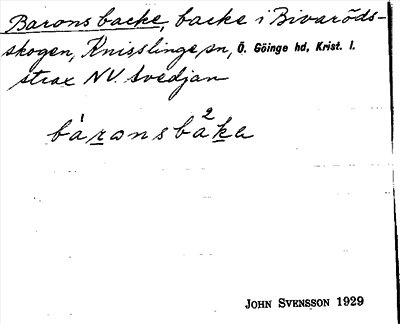 Baronsbacke, backe i Bivaröds-
skogen, Knisslinge sn, Ö. Göinge hd, Krist. l.
strax NV. Svedjan
bàronsbàka
JOHN SVENSSON 1929